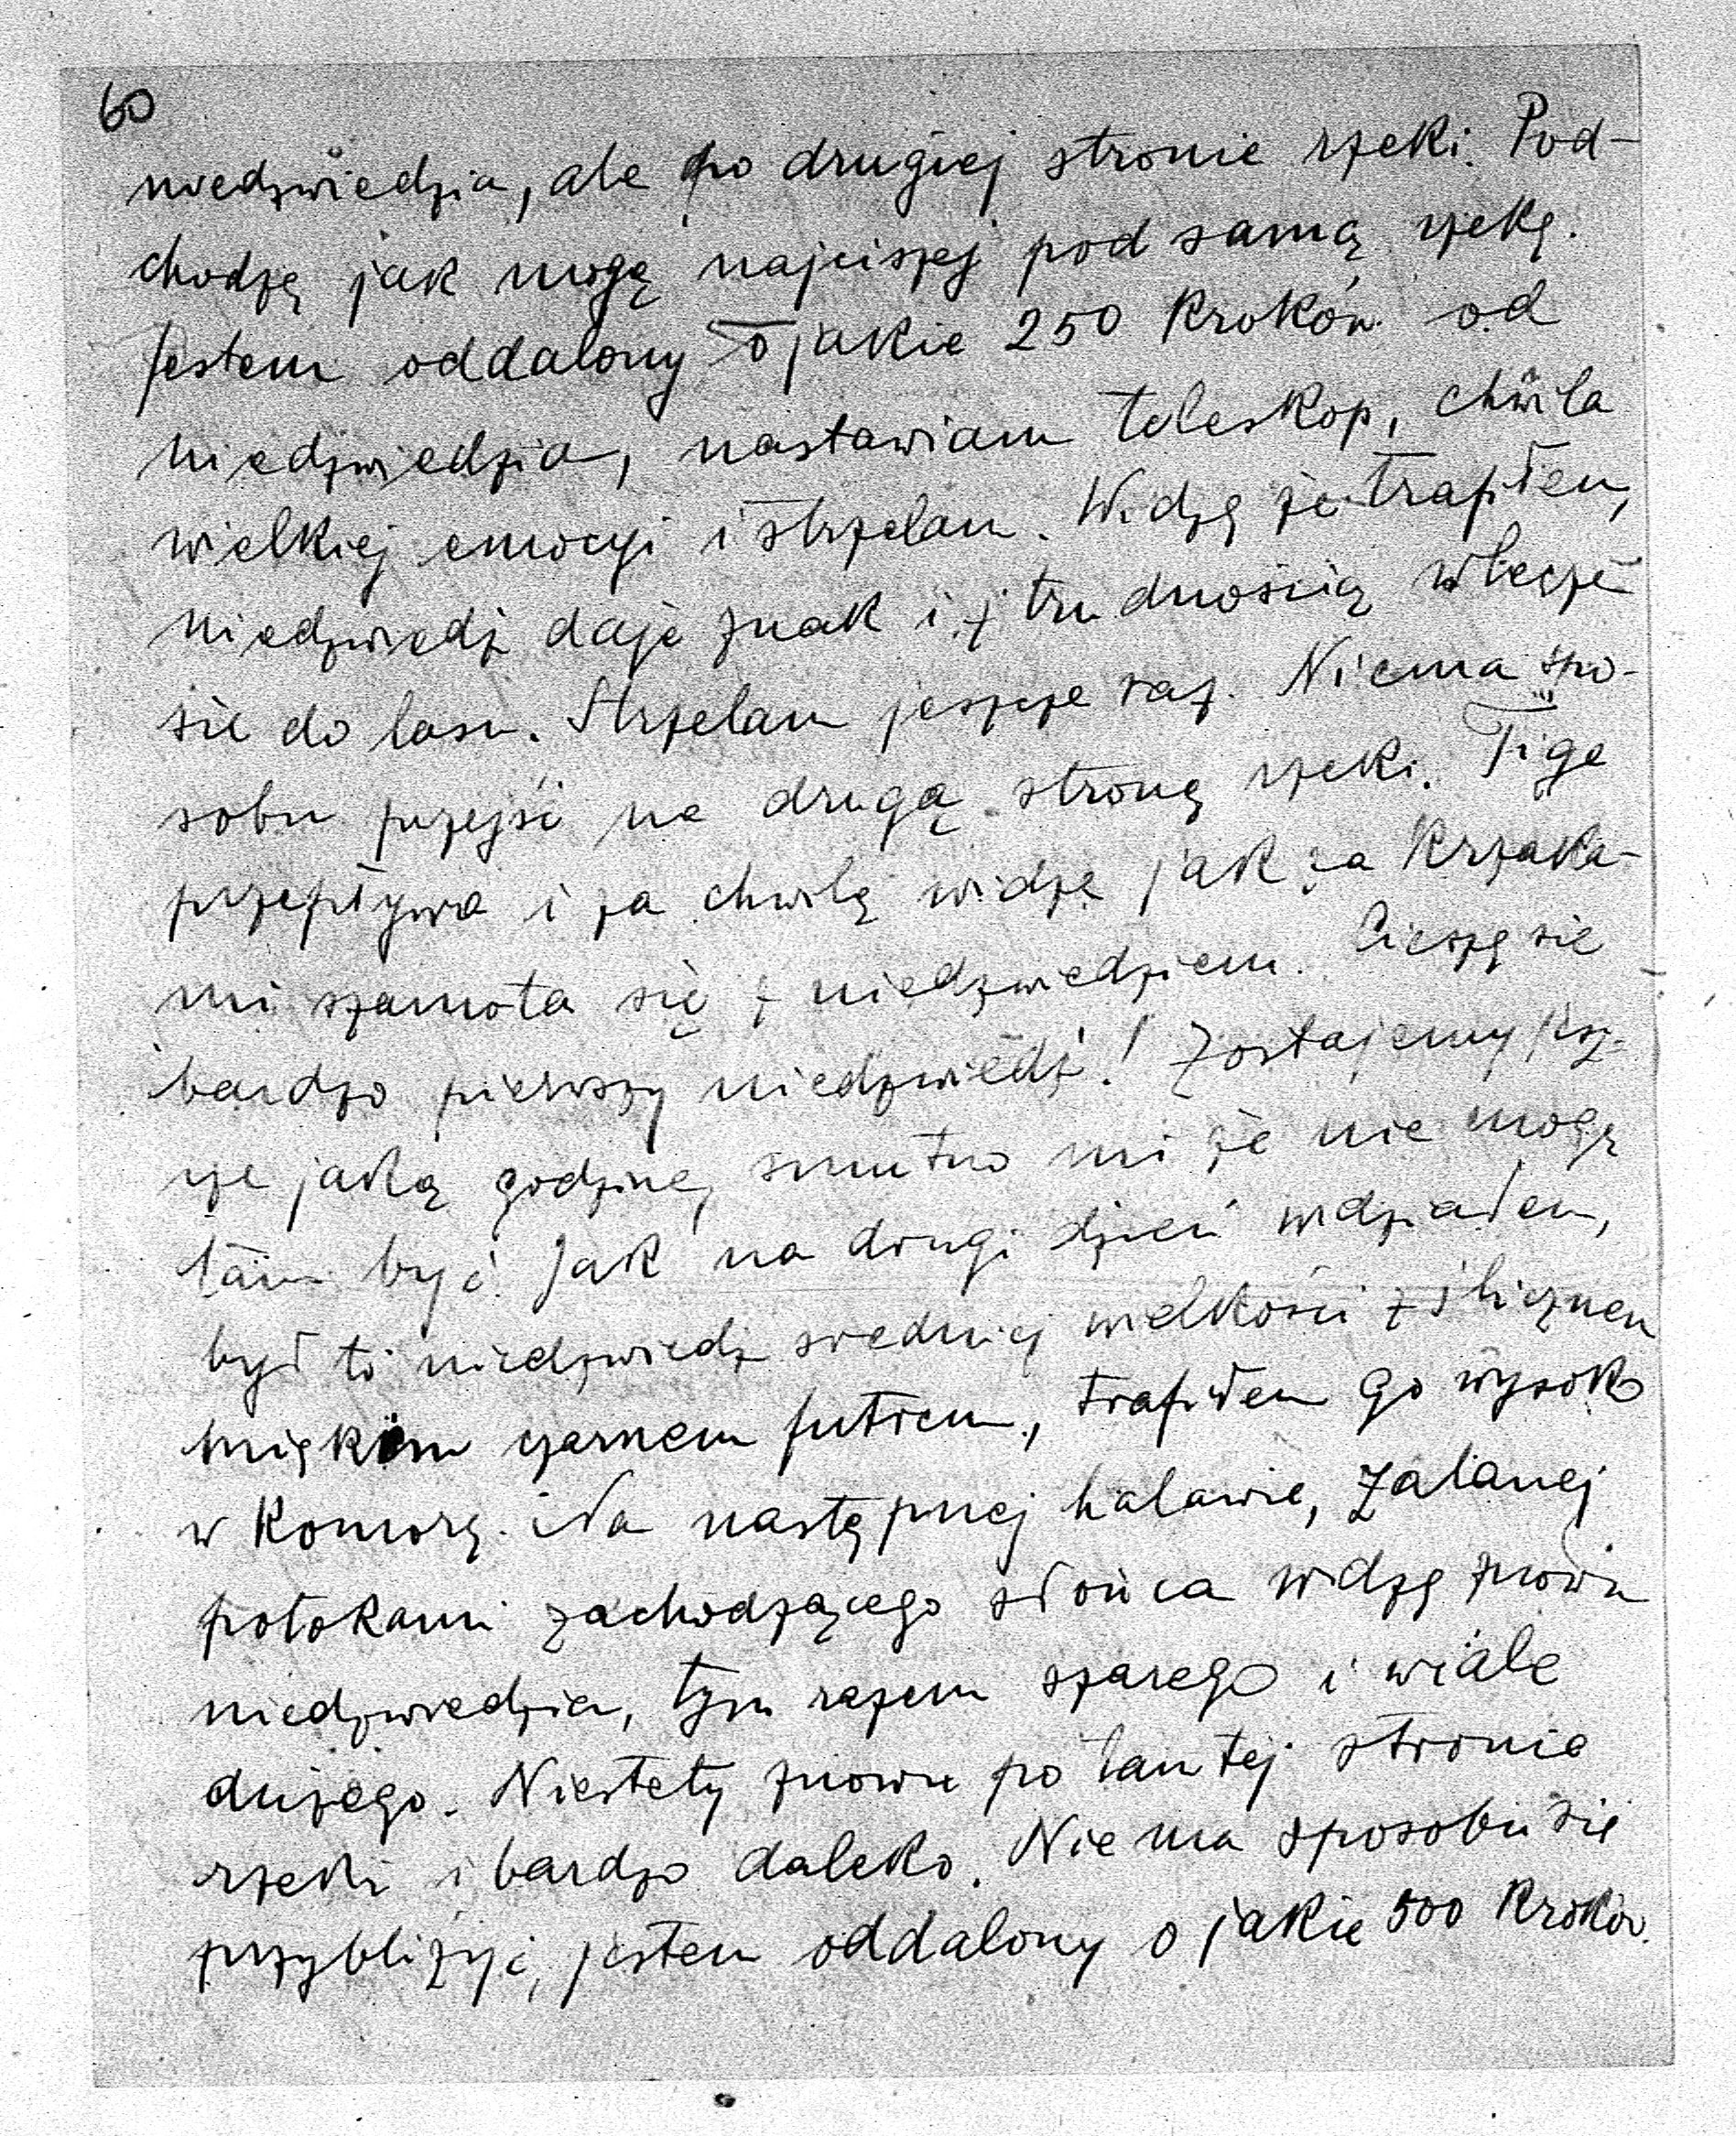 60
niedzwiedzia, ale po drugiej stronie rzeki. Pod-
chodzę jak mogę najciszej pod samą rzekę.
Jestem oddalony o jakie 250 Kroków od
niedzwiedzia, nastawiam teleskop, chwila
wielkiej emocyi i strzelam. Widzę że trafiłem,
niedzwiedź daje znak i z trudnością wlecze
się do lasu. Strzelam jeszcze raz. Niema spo-
sobu przejść na drugą stronę rzeki. Tige
przepływa i za chwilę widzę jak za Krzaka-
mi szamota się z niedzwiedziem. Cieszę sie
bardzo pierwszy niedzwiedź! Zostajemy jesz-
cze jaką godzinę, smutno mi że nie mogę
tam być. Jak na drugi dzień widziałem,
był to niedzwiedz sredniej wielkości z ślicznem
miękiem czarnem futrem, trafiłem go wysoko
w Komorę. Na następnej halawie, zalanej
potokami zachodzącego słońca widzę znowu
niedzwiedzia, tym razem szarego i wiele
dużego. Niestety znowu po tamtej stronie
rzeki i bardzo daleko. Niema sposobu się
przybliżyć, jestem oddalony o jakie 500 Kroków.